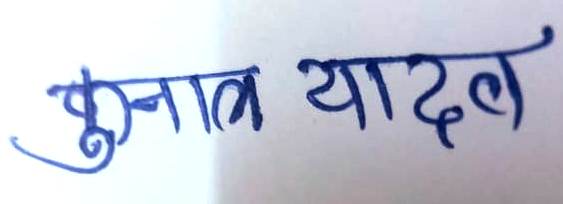 कुनाल यादव